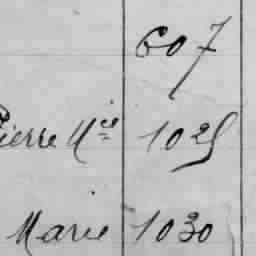 607
Pierre N^ce 1025
Marie 1030